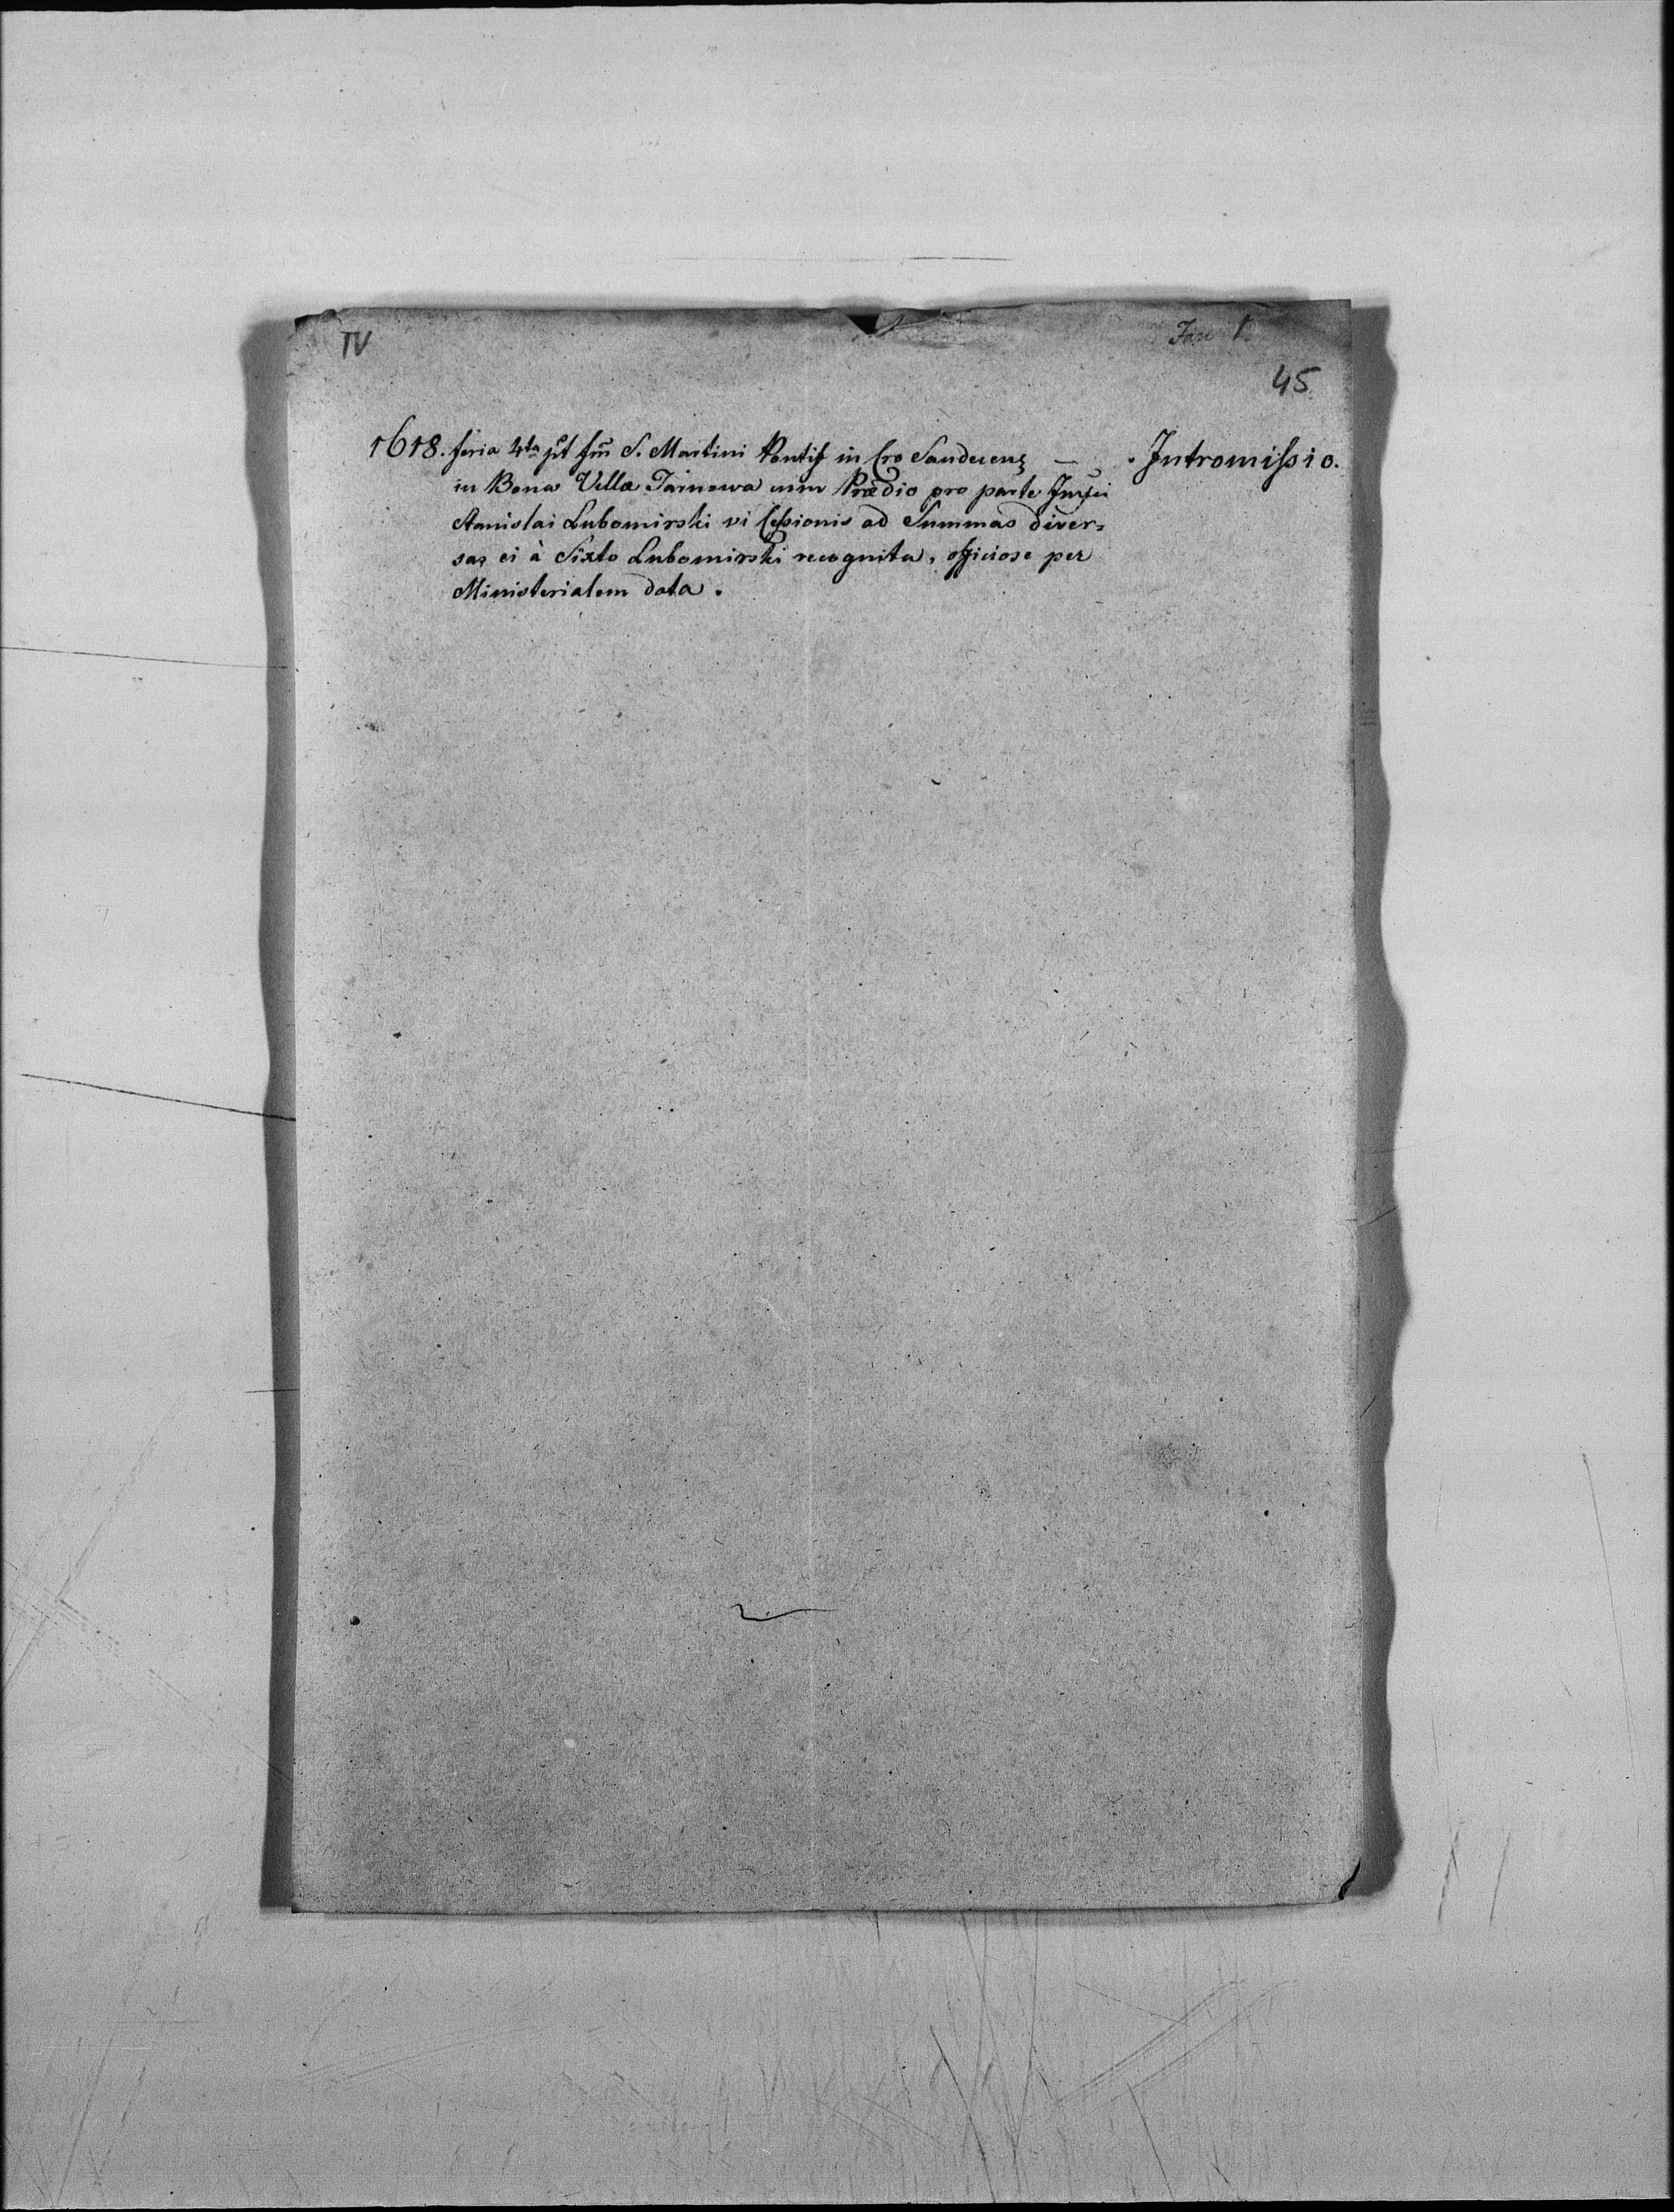 IV
Fasc 1.
45.
1618. feria 4ta pt fm S. Martini Pontif in Cro Sandecens — . Intromissio.
in Bona Villa Tarnowa cum Prædio pro parte
Stanislai Lubomirski vi Cessionis ad Summas diver=
sas ei à Sixto Lubomirski recognita, officiose per
Ministerialem data.